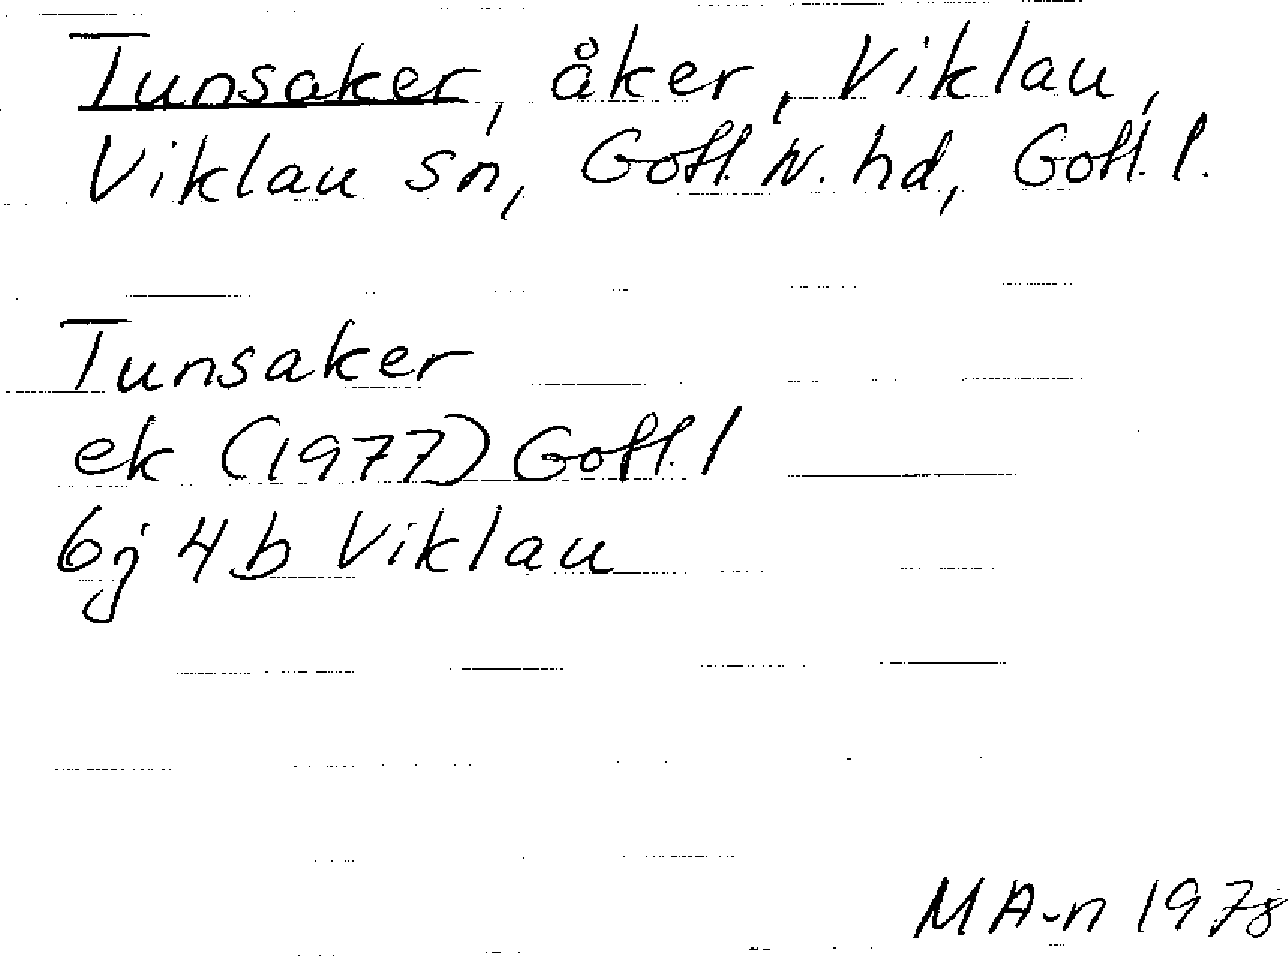 Tunsaker, åker, Viklau,
Viklau sn, Gotl. N. hd, Gotl. l.
Tunsaker
ek (1977) Gotl. l
6j 4b Viklau
MA-n 1978